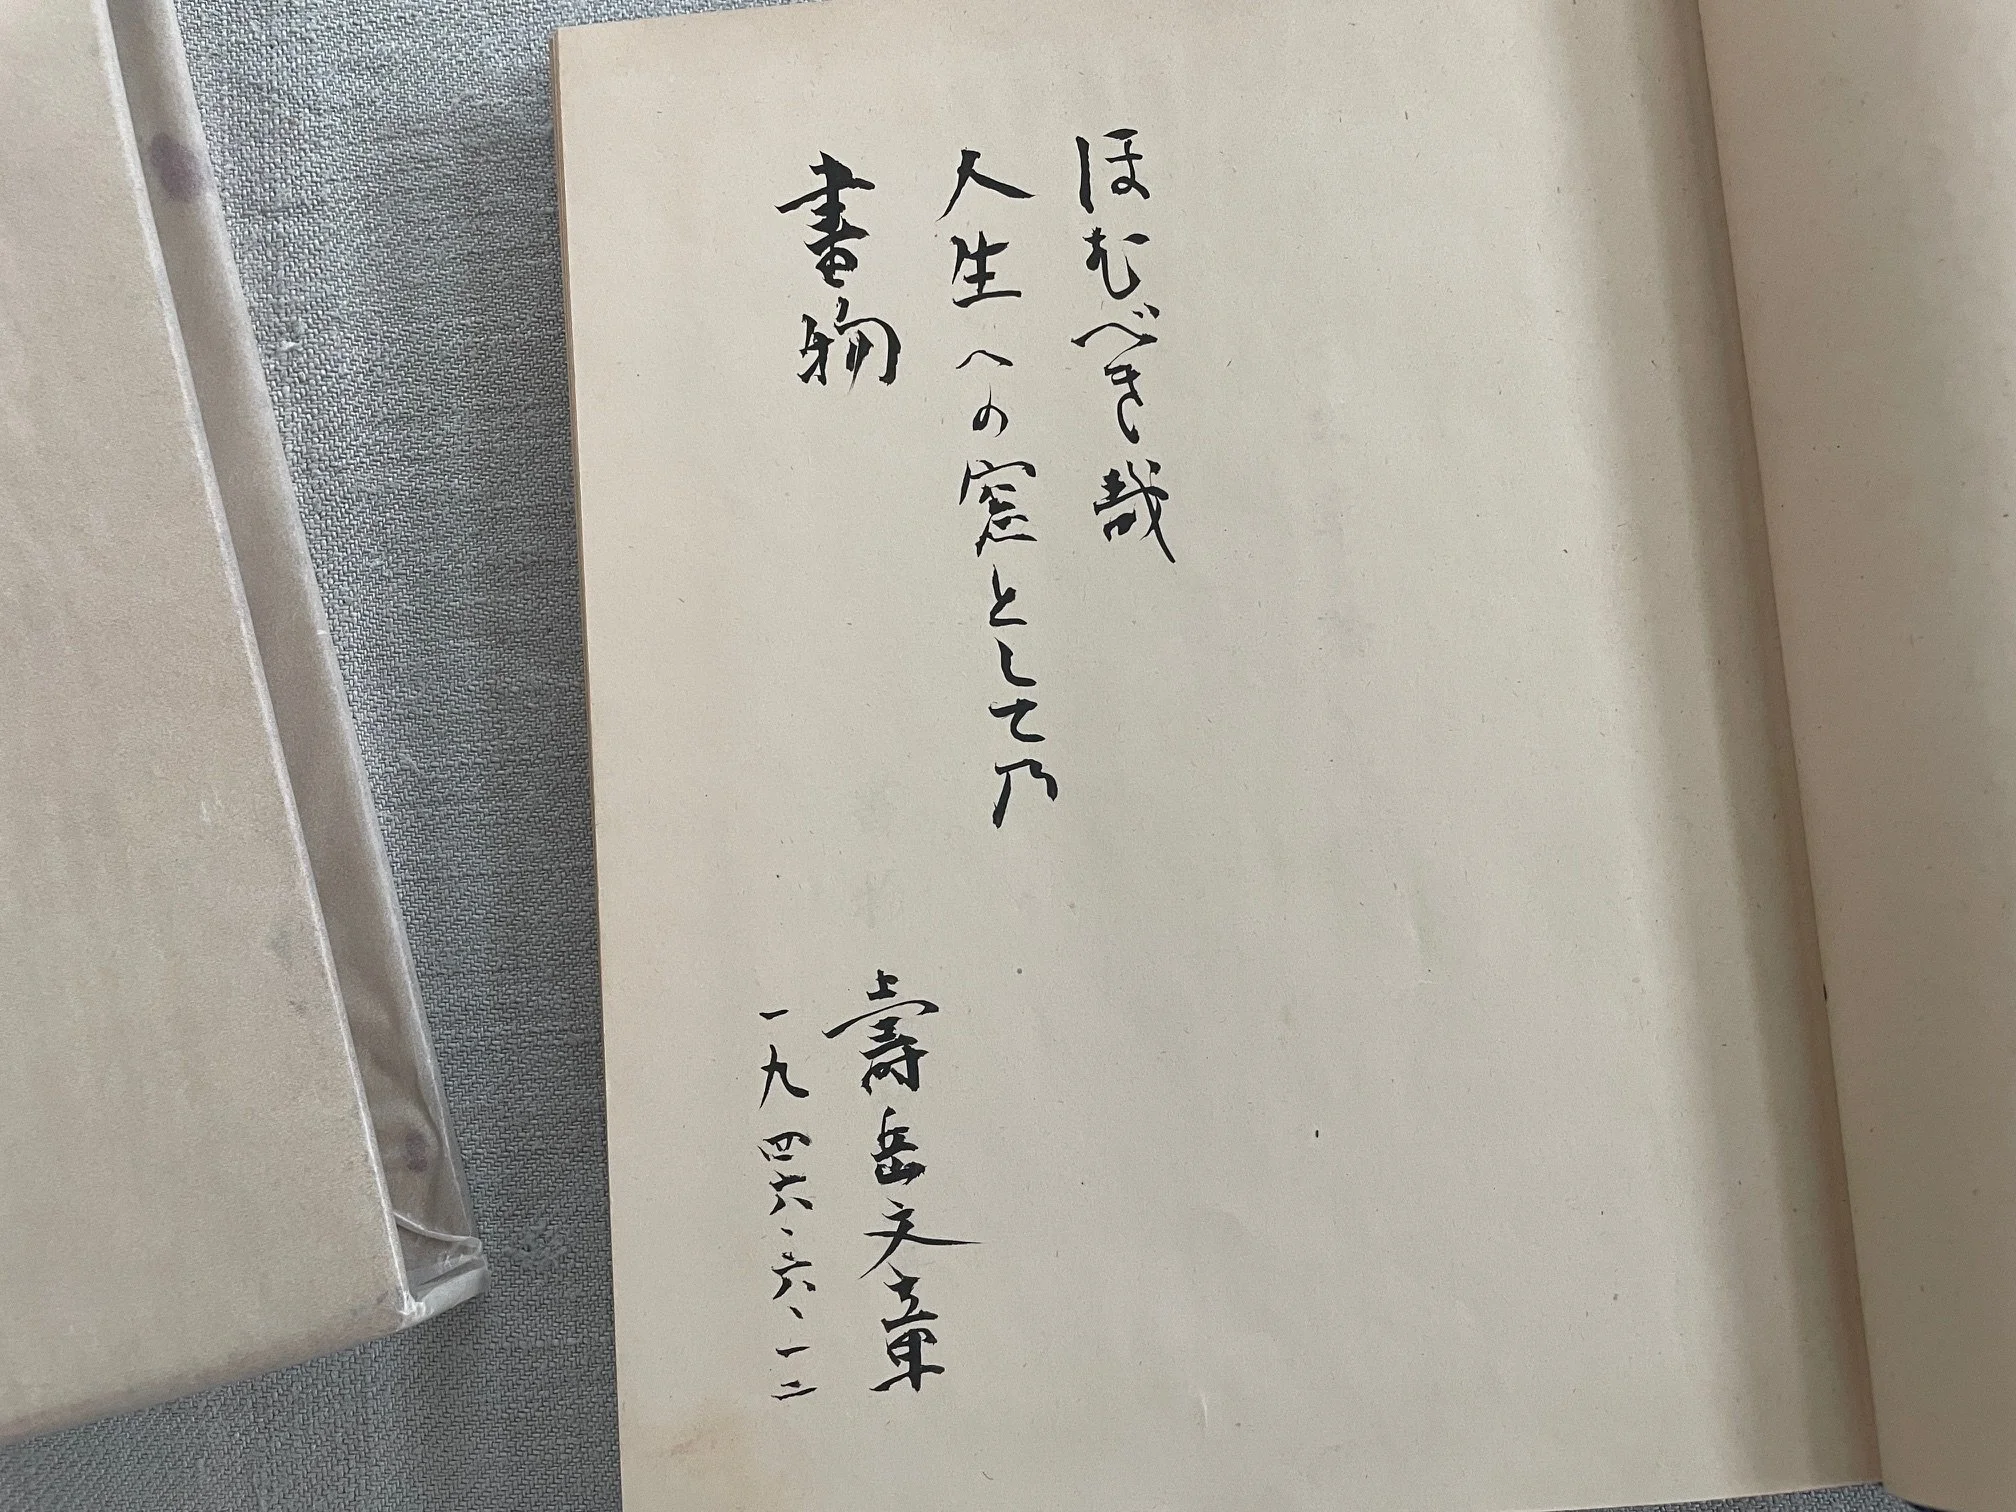 ほむべき哉
人生への窓としての乃
書物
壽岳文章
一九四六、六、一二